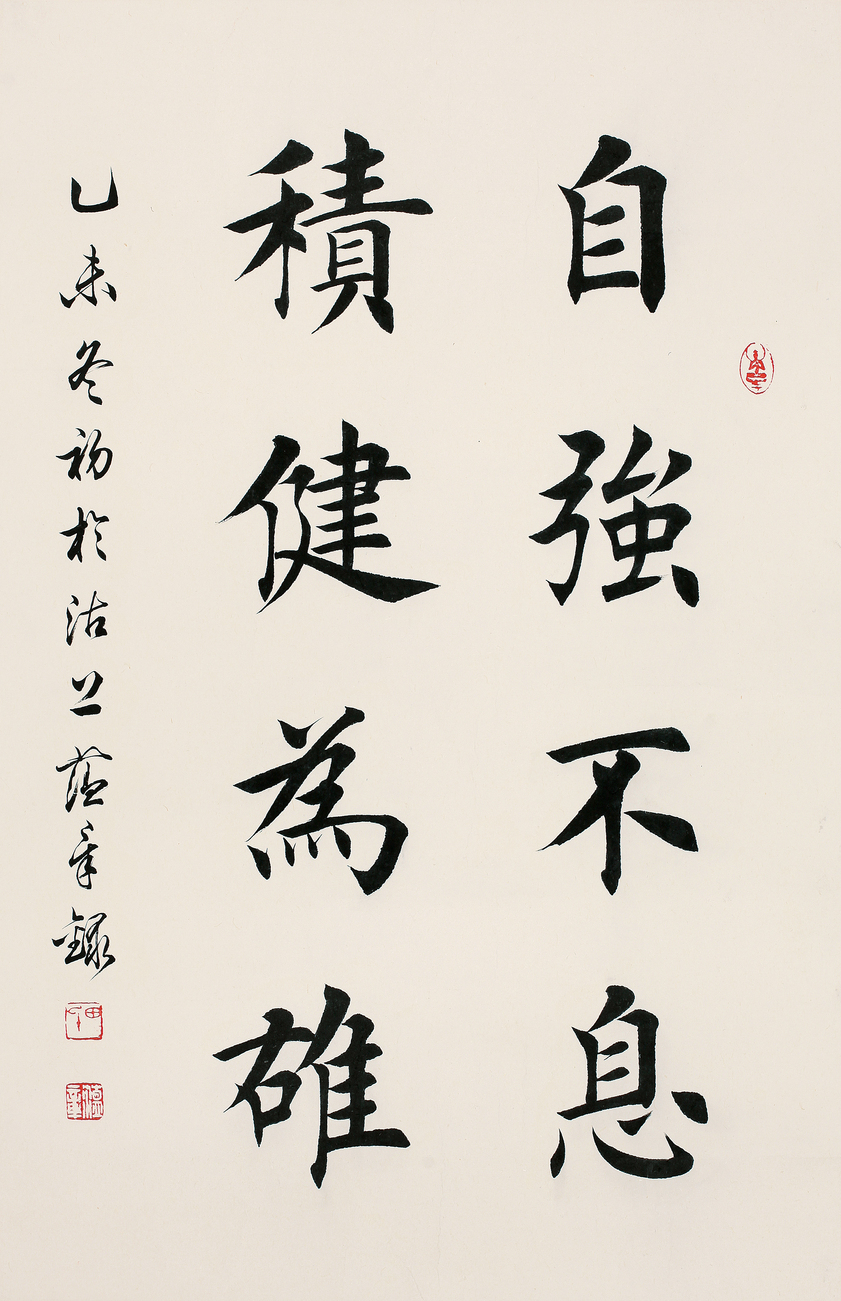 自強不息
積健為雄
乙未冬初於沽上蕴章録